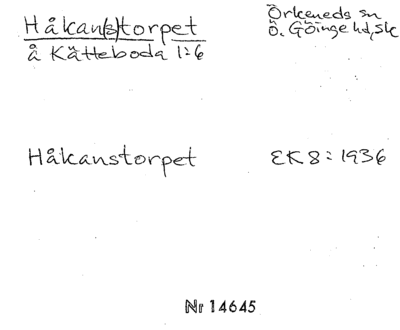 Håkan(s)torpet
å Kätteboda 1:6
Örkeneds sn
Ö. Göinge hd, sk
Håkanstorpet
EK 8:1936
Nr 14645